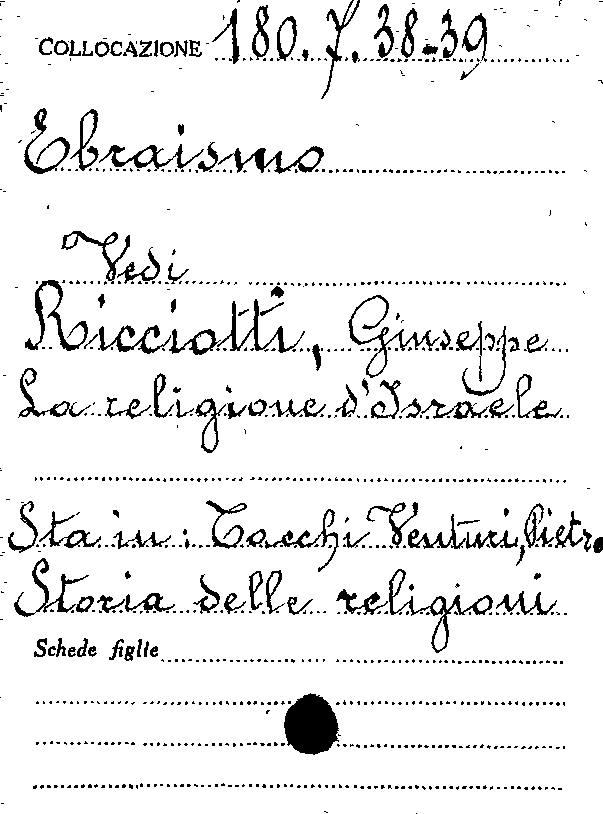 COLLOCAZIONE 180.7.38-39
Ebraismo
Vedi
Ricciotti, Giuseppe
La religione d'Israele
Sta in: Tacchi Venturi, Pietro
Storia delle religioni
Schede figlie